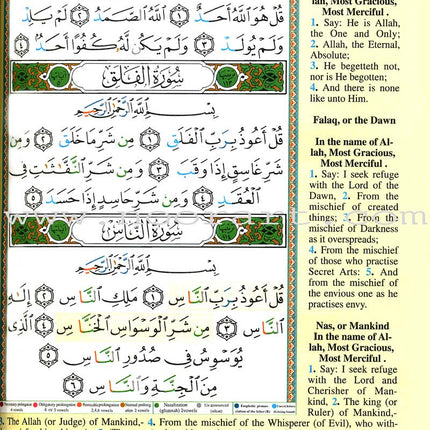 قُلْ هُوَ ٱللَّهُ أَحَدٌ ١ ٱللَّهُ ٱلصَّمَدُ ٢ لَمْ يَلِدْ
وَلَمْ يُولَدْ ٣ وَلَمْ يَكُن لَّهُ كُفُوًا أَحَدٌ ٤
سُورَةُ الْفَلَقِ
بِسْمِ ٱللَّهِ ٱلرَّحْمَٰنِ ٱلرَّحِيمِ
قُلْ أَعُوذُ بِرَبِّ ٱلْفَلَقِ ١ مِن شَرِّ مَا خَلَقَ ٢ وَمِن
شَرِّ غَاسِقٍ إِذَا وَقَبَ ٣ وَمِن شَرِّ ٱلنَّفَّٰثَٰتِ فِى
ٱلْعُقَدِ ٤ وَمِن شَرِّ حَاسِدٍ إِذَا حَسَدَ ٥
سُورَةُ النَّاسِ
بِسْمِ ٱللَّهِ ٱلرَّحْمَٰنِ ٱلرَّحِيمِ
قُلْ أَعُوذُ بِرَبِّ ٱلنَّاسِ ١ مَلِكِ ٱلنَّاسِ ٢ إِلَٰهِ
ٱلنَّاسِ ٣ مِن شَرِّ ٱلْوَسْوَاسِ ٱلْخَنَّاسِ ٤ ٱلَّذِى
يُوَسْوِسُ فِى صُدُورِ ٱلنَّاسِ ٥
مِنَ ٱلْجِنَّةِ وَٱلنَّاسِ ٦
lah, Most Gracious,
Most Merciful .
1. Say: He is Allah,
the One and Only;
2. Allah, the Eternal,
Absolute;
3. He begetteth not,
nor is He begotten;
4. And there is none
like unto Him.
Falaq, or the Dawn
In the name of Al-
lah, Most Gracious,
Most Merciful .
1. Say: I seek refuge
with the Lord of the
Dawn, 2. From the
mischief of created
things; 3. From the
mischief of Darkness
as it overspreads;
4. From the mischief
of those who practise
Secret Arts: 5. And
from the mischief of
the envious one as he
practises envy.
Nas, or Mankind
In the name of Al-
lah, Most Gracious,
Most Merciful .
1. Say: I seek refuge
with the Lord and
Cherisher of Man-
kind, 2. The king (or
Ruler) of Mankind,-
3. The Allah (or Judge) of Mankind,- 4. From the mischief of the Whisperer (of Evil), who with-